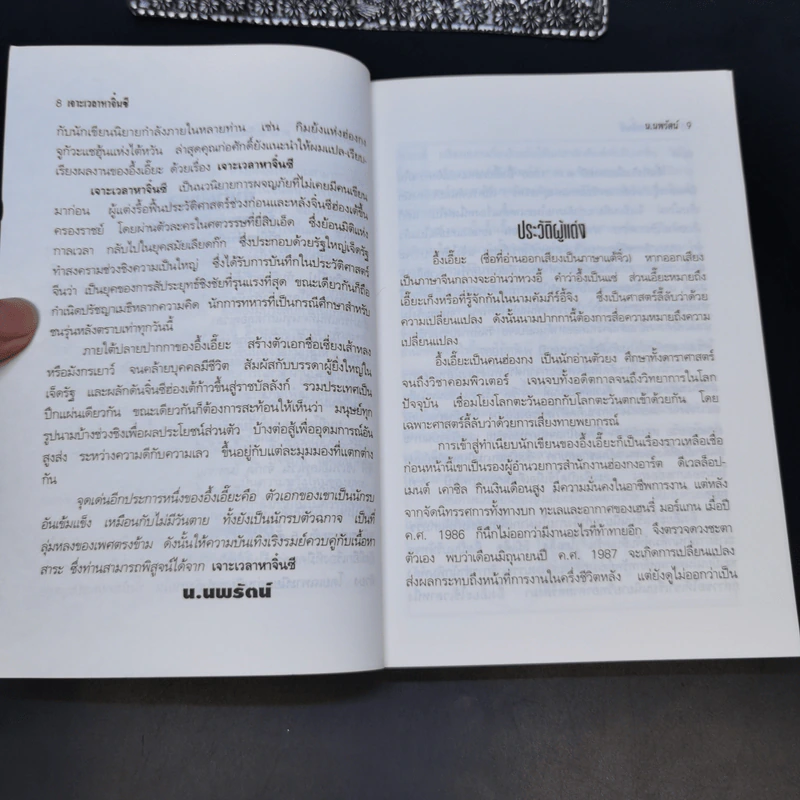 8 เจาะเวลาหาจิ๋นซี
กับนักเขียนนิยายกำลังภายในหลายท่าน เช่น กิมย้งแห่งฮ่องกง
จูกัวะแชฮุ้นแห่งไต้หวัน ล่าสุดคุณก่อศักดิ์ยังแนะนำให้ผมแปล-เรียบ-
เรียงผลงานของอึ้งเอี๊ยะ ด้วยเรื่อง เจาะเวลาหาจิ๋นซี
เจาะเวลาหาจิ๋นซี เป็นนวนิยายการผจญภัยที่ไม่เคยมีคนเขียน
มาก่อน ผู้แต่งรื้อฟื้นประวัติศาสตร์ช่วงก่อนและหลังจิ๋นซีฮ่องเต้ขึ้น
ครองราชย์ โดยผ่านตัวละครในศตวรรษที่ยี่สิบเอ็ด ซึ่งย้อนมิติแห่ง
กาลเวลา กลับไปในยุคสมัยเลียดก๊ก ซึ่งประกอบด้วยรัฐใหญ่เจ็ดรัฐ
ทำสงครามช่วงชิงความเป็นใหญ่ ซึ่งได้รับการบันทึกในประวัติศาสตร์
จีนว่า เป็นยุคของการสัประยุทธ์ชิงชัยที่รุนแรงที่สุด ขณะเดียวกันก็ถือ
กำเนิดปรัชญาเมธีหลากความคิด นักการทหารที่เป็นกรณีศึกษาสำหรับ
ชนรุ่นหลังตราบเท่าทุกวันนี้
ภายใต้ปลายปากกาของอึ้งเอี๊ยะ สร้างตัวเอกชื่อเซี่ยงเส้าหลง
หรือมังกรเยาว์ จนคล้ายบุคคลมีชีวิต สัมผัสกับบรรดาผู้ยิ่งใหญ่ใน
เจ็ดรัฐ และผลักดันจิ๋นซีฮ่องเต้ก้าวขึ้นสู่ราชบัลลังก์ รวมประเทศเป็น
ปึกแผ่นเดียวกัน ขณะเดียวกันก็ต้องการสะท้อนให้เห็นว่า มนุษย์ทุก
รูปนามบ้างช่วงชิงเพื่อผลประโยชน์ส่วนตัว บ้างต่อสู้เพื่ออุดมการณ์อัน
สูงส่ง ระหว่างความดีกับความเลว ขึ้นอยู่กับแต่ละมุมมองที่แตกต่าง
กัน
จุดเด่นอีกประการหนึ่งของอึ้งเอี๊ยะคือ ตัวเอกของเขาเป็นนักรบ
อันเข้มแข็ง เหมือนกับไม่มีวันตาย ทั้งยังเป็นนักรบตัวฉกาจ เป็นที่
ลุ่มหลงของเพศตรงข้าม ดังนั้นให้ความบันเทิงเริงรมย์ควบคู่กับเนื้อหา
สาระ ซึ่งท่านสามารถพิสูจน์ได้จาก เจาะเวลาหาจิ๋นซี
น.นพรัตน์
น.นพรัตน์ 9
ประวัติผู้แต่ง
อึ้งเอี๊ยะ (ชื่อที่อ่านออกเสียงเป็นภาษาแต้จิ๋ว) หากออกเสียง
เป็นภาษาจีนกลางจะอ่านว่าหวงอี้ คำว่าอึ้งเป็นแซ่ ส่วนเอี๊ยะหมายถึง
เอี๊ยะเก็งหรือที่รู้จักกันในนามคัมภีร์อี้จิง ซึ่งเป็นศาสตร์ลี้ลับว่าด้วย
ความเปลี่ยนแปลง ดังนั้นนามปากกานี้ต้องการสื่อความหมายถึงความ
เปลี่ยนแปลง
อึ้งเอี๊ยะเป็นคนฮ่องกง เป็นนักอ่านตัวยง ศึกษาทั้งดาราศาสตร์
จนถึงวิชาคอมพิวเตอร์ เจนจบทั้งอดีตกาลจนถึงวิทยาการในโลก
ปัจจุบัน เชื่อมโยงโลกตะวันออกกับโลกตะวันตกเข้าด้วยกัน โดย
เฉพาะศาสตร์ลี้ลับว่าด้วยการเสี่ยงทายพยากรณ์
การเข้าสู่ทำเนียบนักเขียนของอึ้งเอี๊ยะก็เป็นเรื่องราวเหลือเชื่อ
ก่อนหน้านี้เขาเป็นรองผู้อำนวยการสำนักงานฮ่องกงอาร์ต ดีเวลล็อป-
เมนต์ เคาซิล กินเงินเดือนสูง มีความมั่นคงในอาชีพการงาน แต่หลัง
จากจัดนิทรรศการทั้งทางบก ทะเลและอากาศของเฮนรี่ มอร์แกน เมื่อปี
ค.ศ. 1986 ก็นึกไม่ออกว่ามีงานอะไรที่ท้าทายอีก จึงตรวจดวงชะตา
ตัวเอง พบว่าเดือนมิถุนายนปี ค.ศ. 1987 จะเกิดการเปลี่ยนแปลง
ส่งผลกระทบถึงหน้าที่การงานในครึ่งชีวิตหลัง แต่ยังดูไม่ออกว่าเป็น